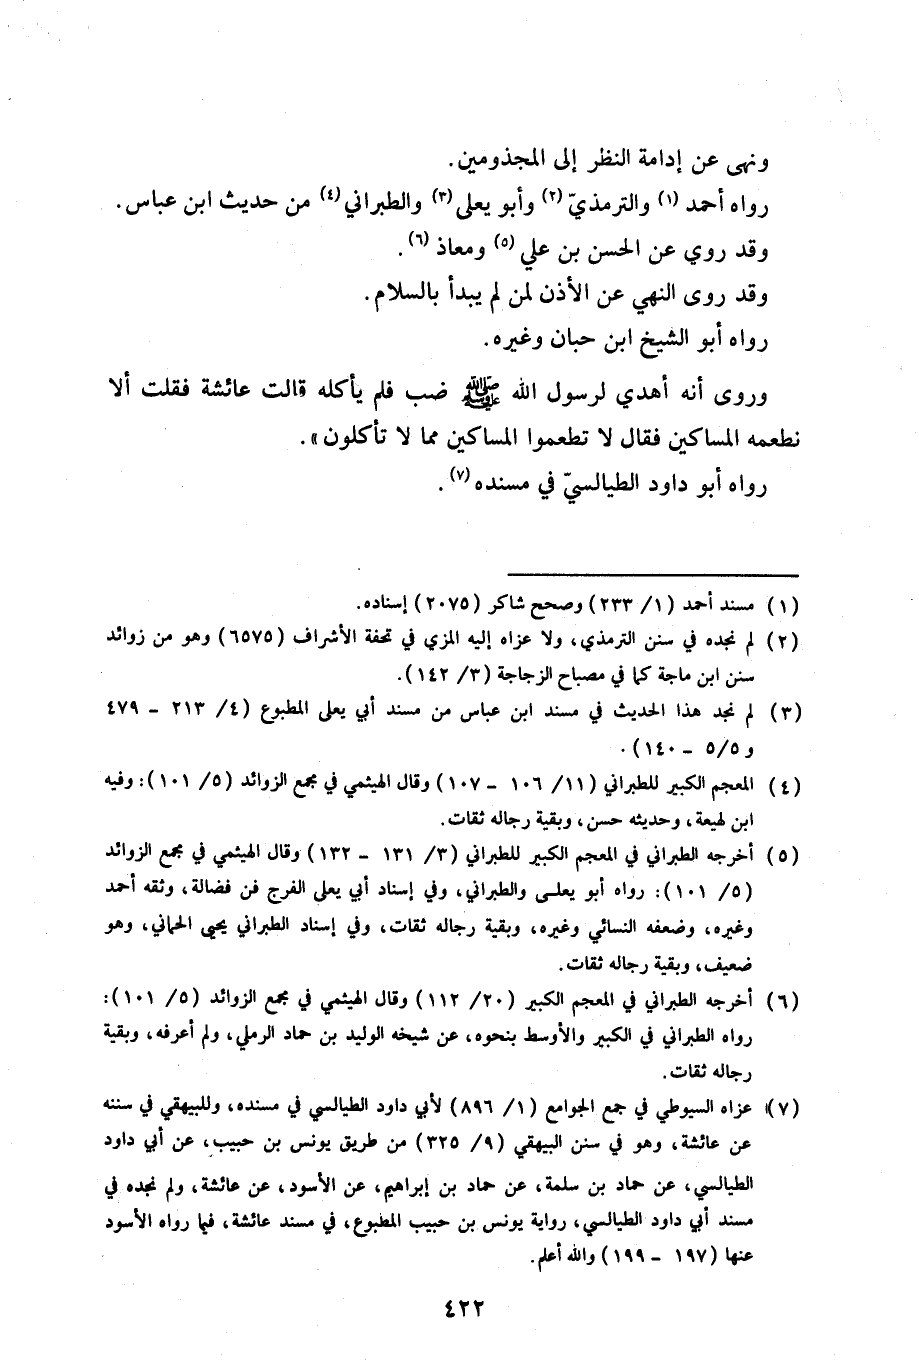 ونهى عن إدامة النظر إلى المجذومين.
رواه أحمد (١) والترمذيّ (٢) وأبو يعلى (٣) والطبراني (٤) من حديث ابن عباس.
وقد روي عن الحسن بن علي (٥) ومعاذ (٦).
وقد روى النهي عن الأذن لمن لم يبدأ بالسلام.
رواه أبو الشيخ ابن حبان وغيره.
وروى أنه أهدي لرسول الله ﷺ ضب فلم يأكله قالت عائشة فقلت ألا
نطعمه المساكين فقال لا تطعموا المساكين مما لا تأكلون».
رواه أبو داود الطيالسيّ في مسنده (٧).
(١) مسند أحمد (١/ ٢٣٣) وصحح شاكر (٢٠٧٥) إسناده.
(٢) لم نجده في سنن الترمذي، ولا عزاه إليه المزي في تحفة الأشراف (٦٥٧٥) وهو من زوائد
سنن ابن ماجة كما في مصباح الزجاجة (٣/ ١٤٢).
(٣) لم نجد هذا الحديث في مسند ابن عباس من مسند أبي يعلى المطبوع (٤/ ٢١٣ - ٤٧٩
و ٥/٥ - ١٤٠).
(٤) المعجم الكبير للطبراني (١١/ ١٠٦ - ١٠٧) وقال الهيثمي في مجمع الزوائد (٥/ ١٠١): وفيه
ابن لهيعة، وحديثه حسن، وبقية رجاله ثقات.
(٥) أخرجه الطبراني في المعجم الكبير للطبراني (٣/ ١٣١ - ١٣٢) وقال الهيثمي في مجمع الزوائد
(٥/ ١٠١): رواه أبو يعلى والطبراني، وفي إسناد أبي يعلى الفرج فن فضالة، وثقه أحمد
وغيره، وضعفه النسائي وغيره، وبقية رجاله ثقات، وفي إسناد الطبراني يحيى الحماني، وهو
ضعيف، وبقية رجاله ثقات.
(٦) أخرجه الطبراني في المعجم الكبير (٢٠/ ١١٢) وقال الهيثمي في مجمع الزوائد (٥/ ١٠١):
رواه الطبراني في الكبير والأوسط بنحوه، عن شيخه الوليد بن حماد الرملي، ولم أعرفه، وبقية
رجاله ثقات.
(٧) عزاه السيوطي في جمع الجوامع (١/ ٨٩٦) لأبي داود الطيالسي في مسنده، وللبيهقي في سننه
عن عائشة، وهو في سنن البيهقي (٩/ ٣٢٥) من طريق يونس بن حبيب، عن أبي داود
الطيالسي، عن حماد بن سلمة، عن حماد بن إبراهيم، عن الأسود، عن عائشة، ولم نجده في
مسند أبي داود الطيالسي، رواية يونس بن حبيب المطبوع، في مسند عائشة، فيما رواه الأسود
عنها (١٩٧ - ١٩٩) والله أعلم.
٤٢٢